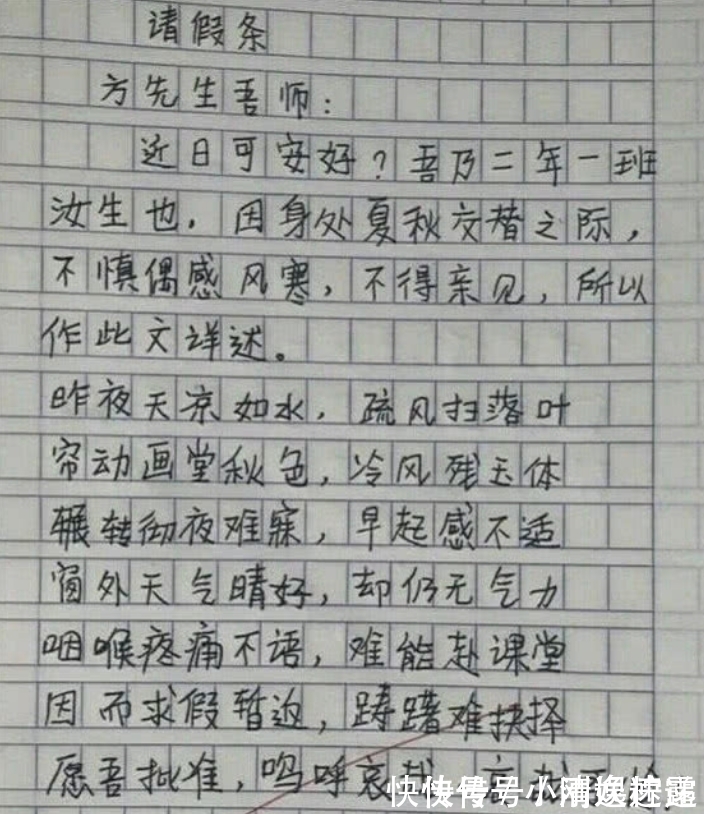 请假条
方先生吾师：
近日可安好？吾乃二年一班
汝生也，因身处夏秋交替之际，
不慎偶感风寒，不得亲见，所以
作此文详述。
昨夜天凉如水，疏风扫落叶
帘动画堂秋色，冷风残玉体
辗转彻夜难寐，早起感不适
窗外天气晴好，却仍无气力
咽喉疼痛不语，难能赴课堂
因而求假暂返，踌躇难抉择
愿吾批准，呜呼哀哉
快传号